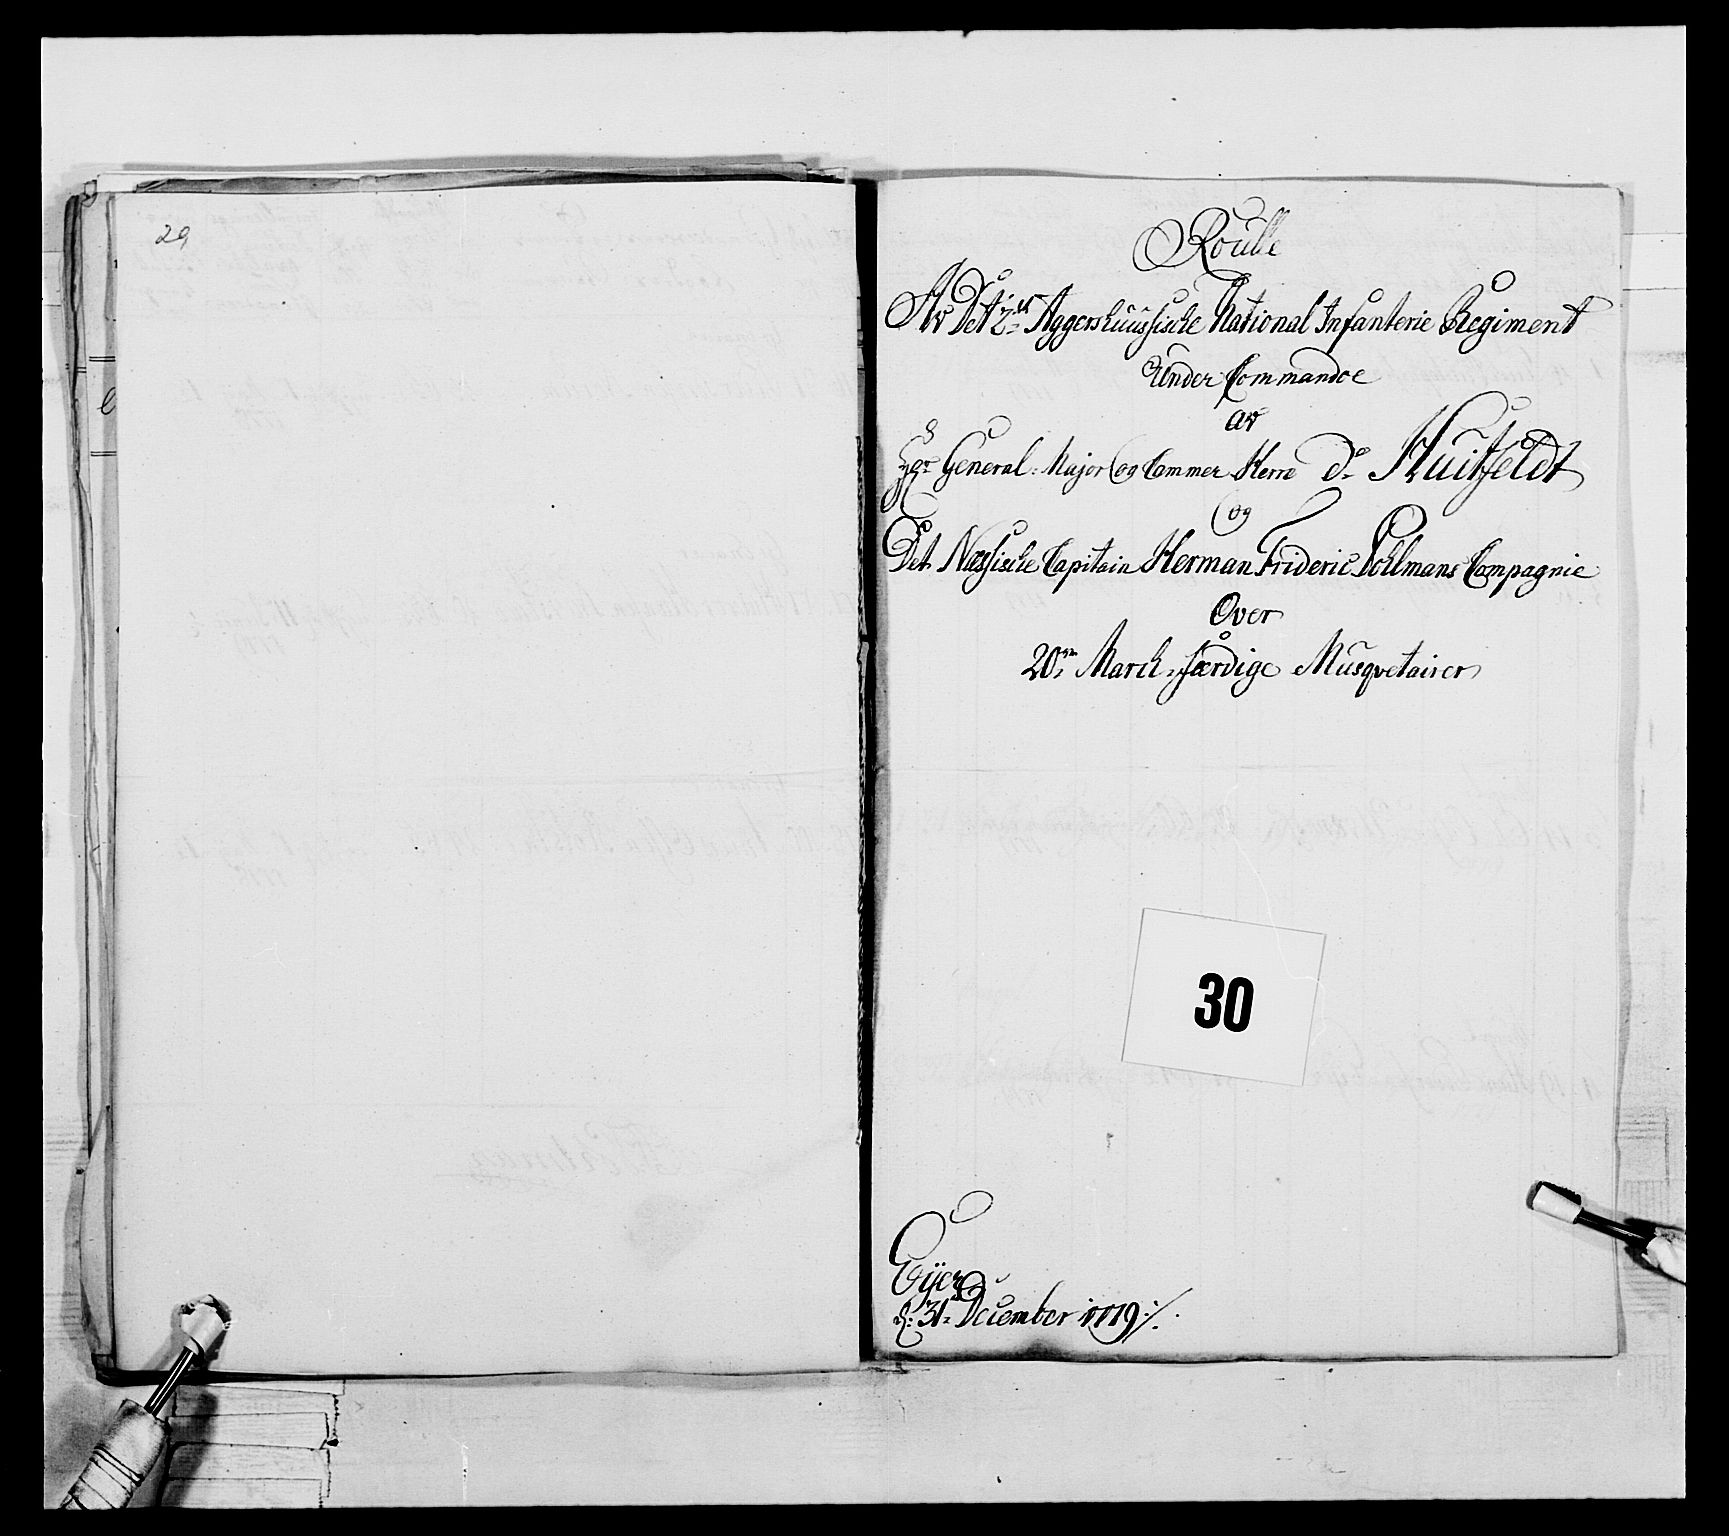 29
Roulle
Av Det 2det Aggershuusiske National Infanterie Regiment
Under Commando
av
Hr General-Major og Cammer Herre de Huitfeldt
og
Det Næssiske Capitain Herman Frideric Pollmans Compagnie
Over
20ve March-færdige Musqvetairer
30
Eyer
d: 31te December 1779 ·/.